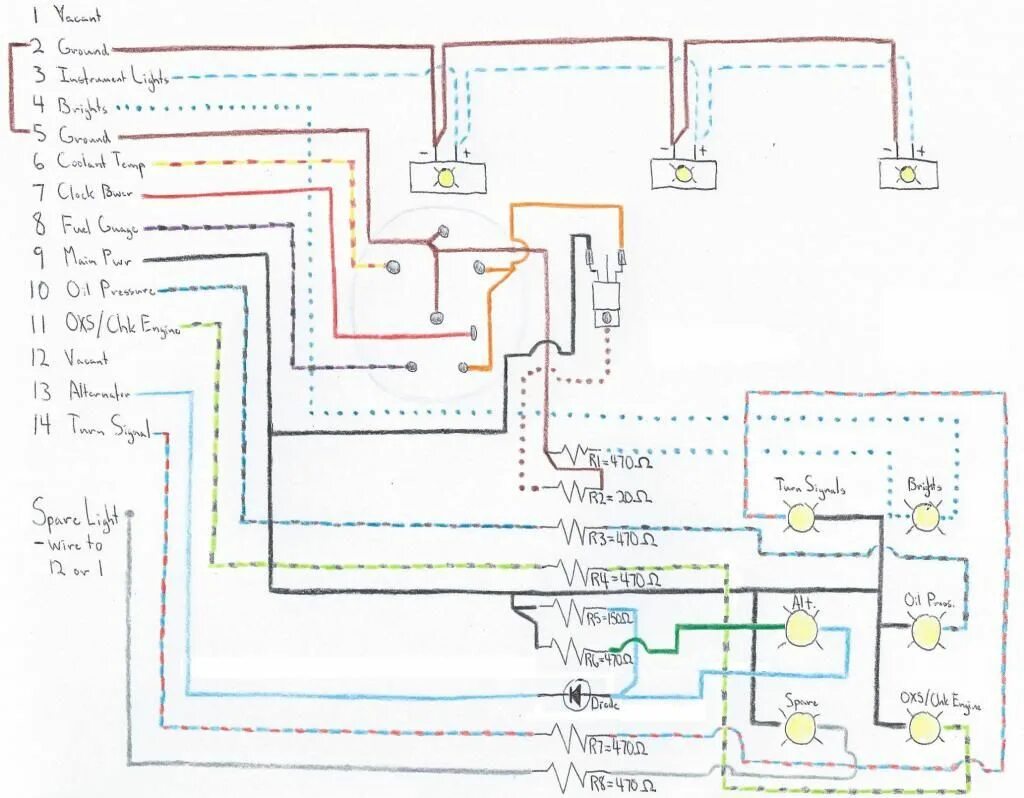 1 Vacant
2 Ground
3 Instrument Lights
4 Brights
5 Ground
6 Coolant Temp
7 Clock Power
8 Fuel Guage
9 Main Pwr
10 Oil Pressure
11 OXS/Chk Engine
12 Vacant
13 Alternator
14 Turn Signal
Spare Light
- wire to
12 or 1
- +
- +
- +
R1=470Ω
R2=20Ω
R3=470Ω
R4=470Ω
R5=150Ω
R6=470Ω
Diode
R7=470Ω
R8=470Ω
Turn Signals
Brights
Alt.
Oil Press.
Spare
OXS/Chk Engine